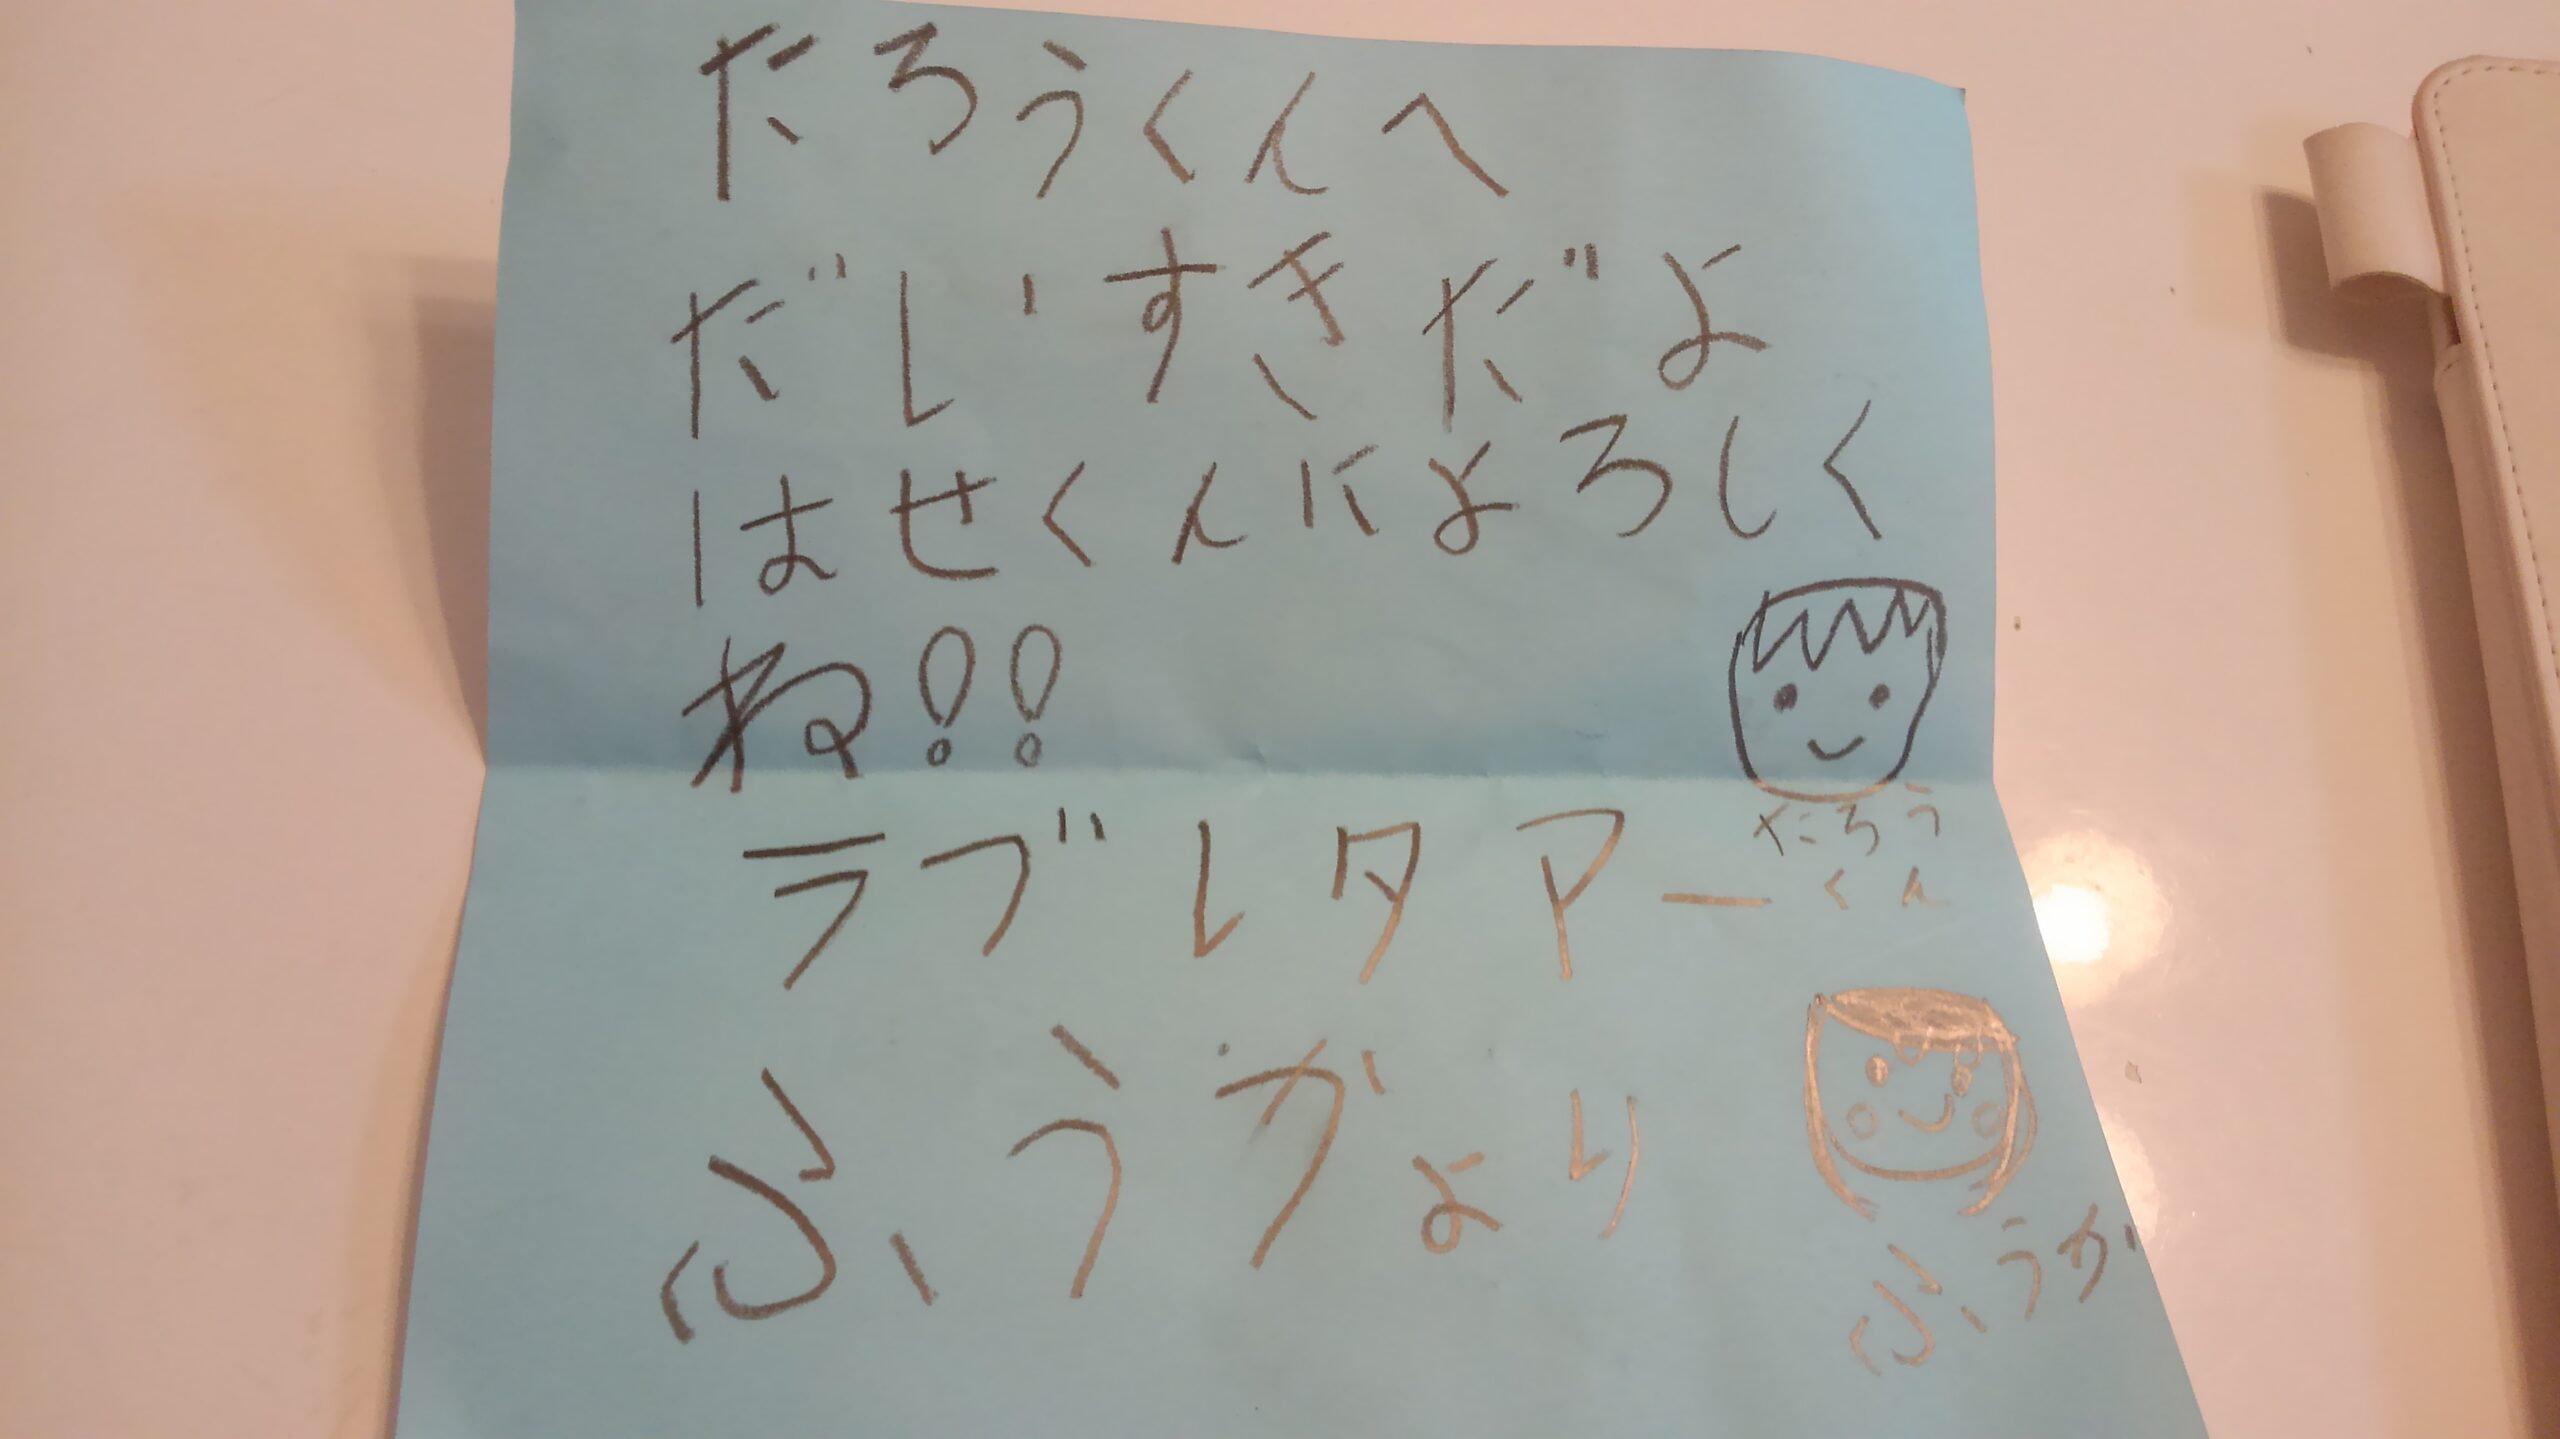 たろうくんへ
だいすきだよ
はせくんによろしく
ね!!
ラブレタアー
ふうかより
たろう
くん
ふうか